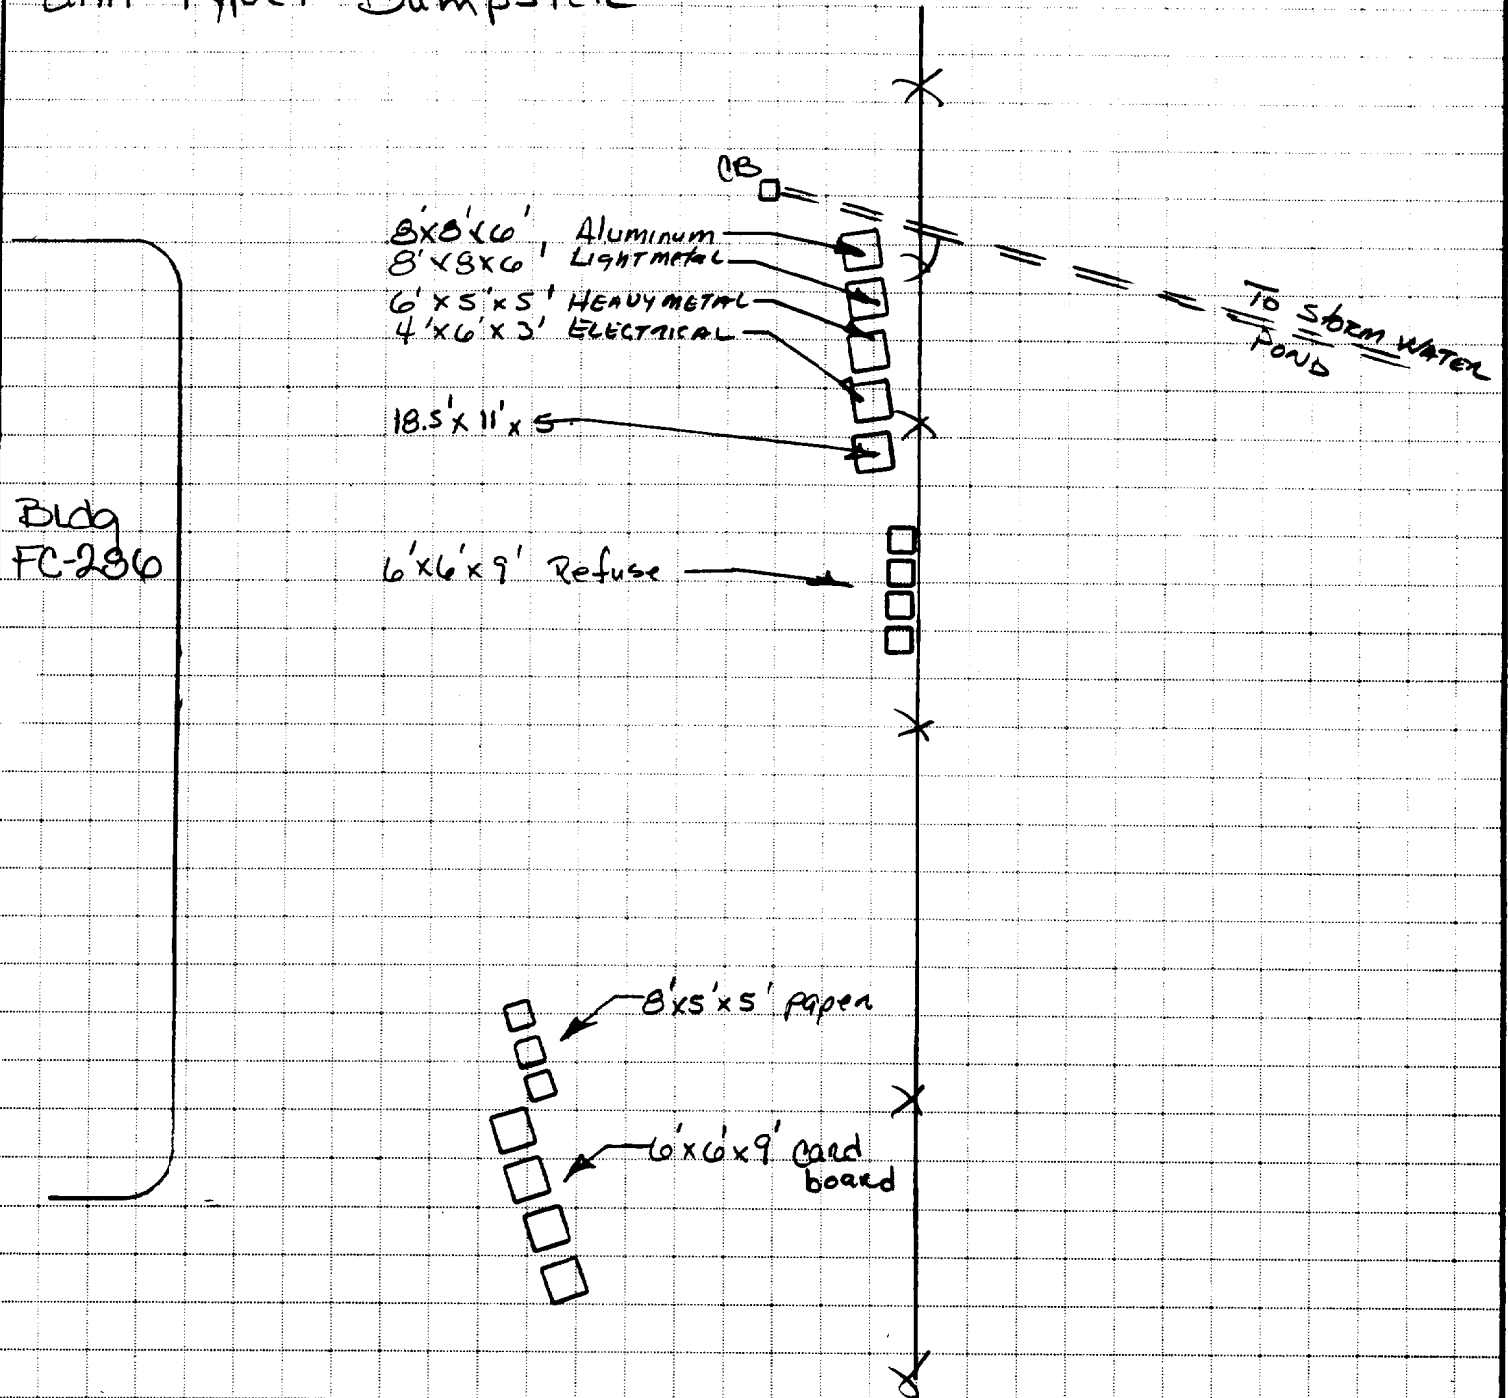 Unit Type: Dumpster
CB
8'x8'x6', Aluminum
8'x8x6' Lightmetal
6'x5'x5' HEAVY METAL
4'x6'x3' ELECTRICAL
18.5'x11'x5
TO STORM WATER
POND
Bldg
FC-286
6'x6'x9' Refuse
8'x5'x5' paper
6'x6'x9' Card
board